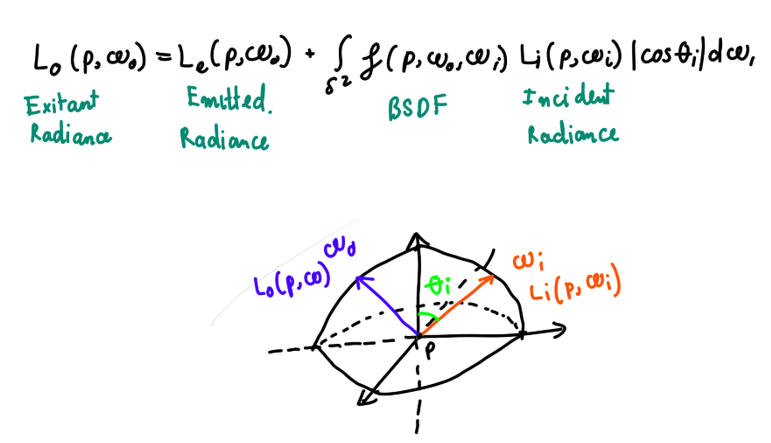 L₀(p,ω₀) = Lₑ(p,ω₀) + ∫ₛ² f(p,ω₀,ωᵢ) Lᵢ(p,ωᵢ) |cosθᵢ| dωᵢ
Exitant Radiance
Emitted. Radiance
BSDF
Incident Radiance
ω₀
L₀(p,ω)
θᵢ
ωᵢ
Lᵢ(p,ωᵢ)
p